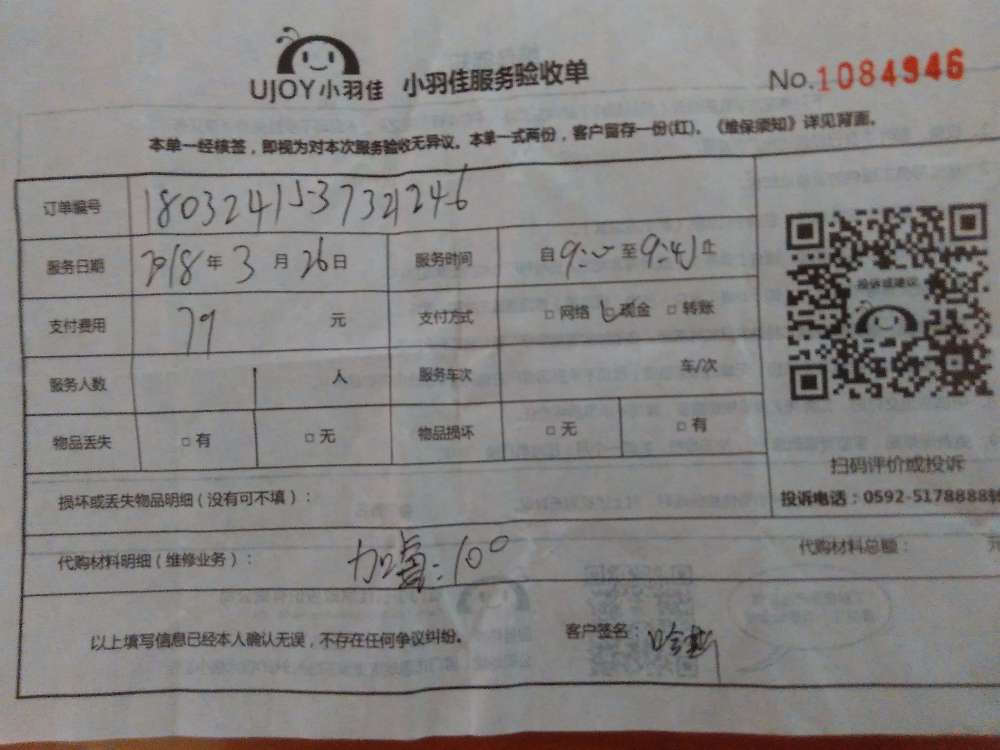 UJOY小羽佳 小羽佳服务验收单 No.1084946
本单一经核签，即视为对本次服务验收无异议。本单一式两份，客户留存一份(红)。《维保须知》详见背面。
订单编号 1803241537321246
服务日期 2018年3月26日 服务时间 自9: 至9:4 止
投诉或建议
支付费用 79 元 支付方式 □ 网络 □ 现金 □ 转账
服务人数 1 人 服务车次 车/次
物品丢失 □ 有 □ 无 物品损坏 □ 无 □ 有
扫码评价或投诉
损坏或丢失物品明细（没有可不填）：
投诉电话：0592-5178888转
代购材料明细（维修业务）： 代购材料总额： 元
以上填写信息已经本人确认无误，不存在任何争议纠纷。 客户签名：